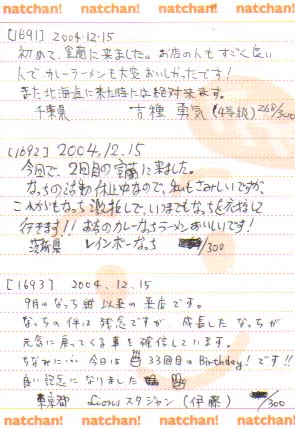 natchan! natchan! natchan! natchan!
[1691] 2004.12.15
初めて、室蘭に来ました。お店の人もすごく良い
人でカレーラーメンも大変おいしかったです!
また北海道に来た時には絶対来ます。
千葉県 吉種 勇気 (4等級) 268/300
[1692] 2004.12.15
今回で、2回目の室蘭に来ました。
なっちの活動休止中なので、私もさみしいですが、
これからもなっち激推しで、いつまでもなっちを応援して
行きます!! お店のカレーなっちラーメンおいしいです!
茨城県 レインボーなっち /300
[1693] 2004.12.15
9月のなっち 以来の来店です。
なっちの件は残念ですが、成長したなっちが
元気に戻ってくる事を確信しています。
ちなみに… 今日は 33回目のBirthday!です!!
良い記念になりました
東京都 Lionsスタジャン (伊藤) /300
natchan! natchan! natchan! natchan!